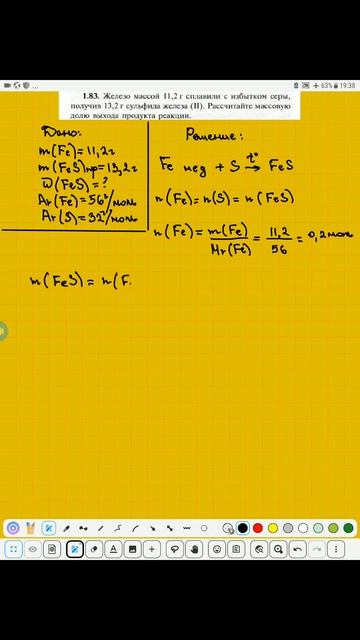 19:38
1.83. Железо массой 11,2 г сплавили с избытком серы,
получив 13,2 г сульфида железа (II). Рассчитайте массовую
долю выхода продукта реакции.
Дано:
m(Fe)=11,2г
m(FeS)пр=13,2г
ω(FeS)=?
Ar(Fe)=56г/моль
Ar(S)=32г/моль
Решение:
Fe нед + S t° → FeS
n(Fe)=n(S)=n(FeS)
n(Fe)= m(Fe)/Mr(Fe) = 11,2/56 =0,2моль
m(FeS)=n(F